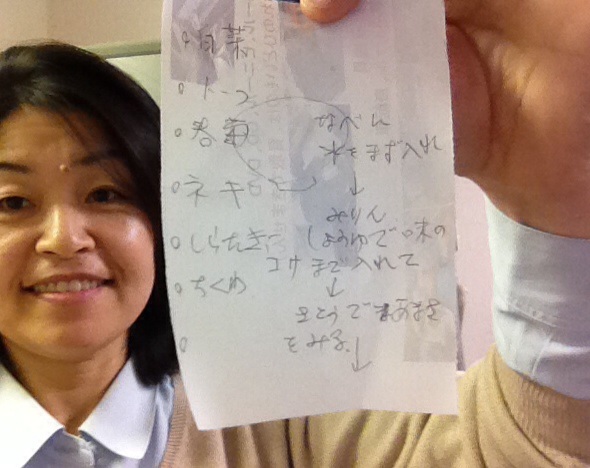 白菜
トーフ
春菊
ネギ
しらたき
ちくわ
なべに
水をまず入れ
↓
みりん
しょうゆで味の
コサまで入れて
↓
さとうであまさ
をみる。
↓